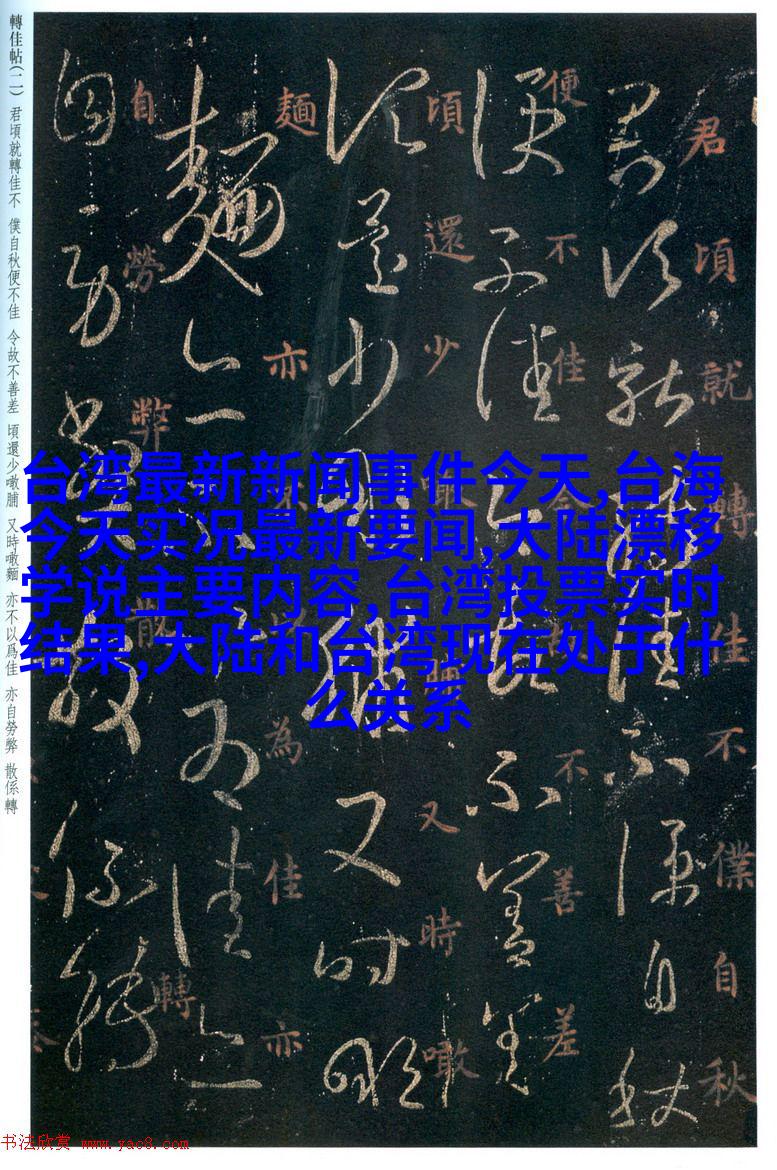 轉佳帖(二) 君頃就轉佳不 僕自秋便不佳 令故不善差 頃還少噉脯 又時噉麵 亦不以爲佳 亦自勞弊 散係轉
君頃就轉佳不僕自秋
便不佳令故不善差
頃還少噉脯又時噉
麵亦不以為佳亦
自勞弊散係轉
台湾最新新闻事件今天,台海
今天实况最新要闻,大陆漂移
学说主要内容,台湾投票实时
结果,大陆和台湾现在处于什
么关系
书法欣赏 www.yac8.com